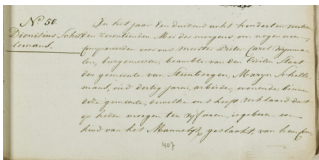 N° 50
Dionisius Schel
lemans.
In het jaar een duizend acht honderd en zestien
den veertienden Mei des morgens om negen ure
Compareerde voor ons Meester Pieter Carel
burgemeester, beambte van den Civielen Staat
der gemeente van Steenbergen, Marijn Schelle
mans, oud dertig jaren, arbeider, wonende binnen
deze gemeente, dewelke ons heeft verklaard dat
op heden morgen ten vijf uren, is geboren een
kind van het Mannelijk geslacht van hem
407